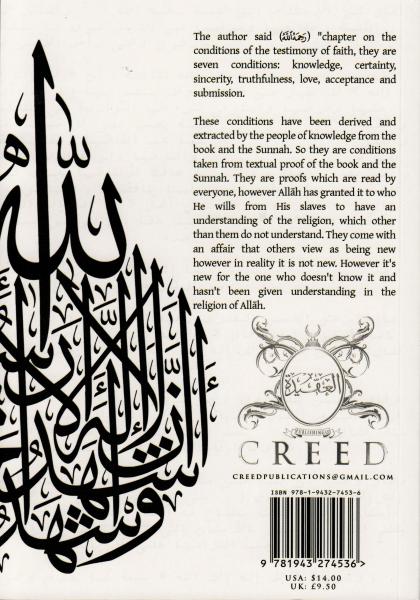 The author said (رحمه الله) "chapter on the
conditions of the testimony of faith, they are
seven conditions: knowledge, certainty,
sincerity, truthfulness, love, acceptance and
submission.
These conditions have been derived and
extracted by the people of knowledge from the
book and the Sunnah. So they are conditions
taken from textual proof of the book and the
Sunnah. They are proofs which are read by
everyone, however Allāh has granted it to who
He wills from His slaves to have an
understanding of the religion, which other
than them do not understand. They come with
an affair that others view as being new
however in reality it is not new. However it's
new for the one who doesn't know it and
hasn't been given understanding in the
religion of Allāh.
العقيدة
PUBLISHING
CREED
CREEDPUBLICATIONS@GMAIL.COM
ISBN 978-1-9432-7453-6
9 781943 274536>
USA: $14.00
UK: £9.50